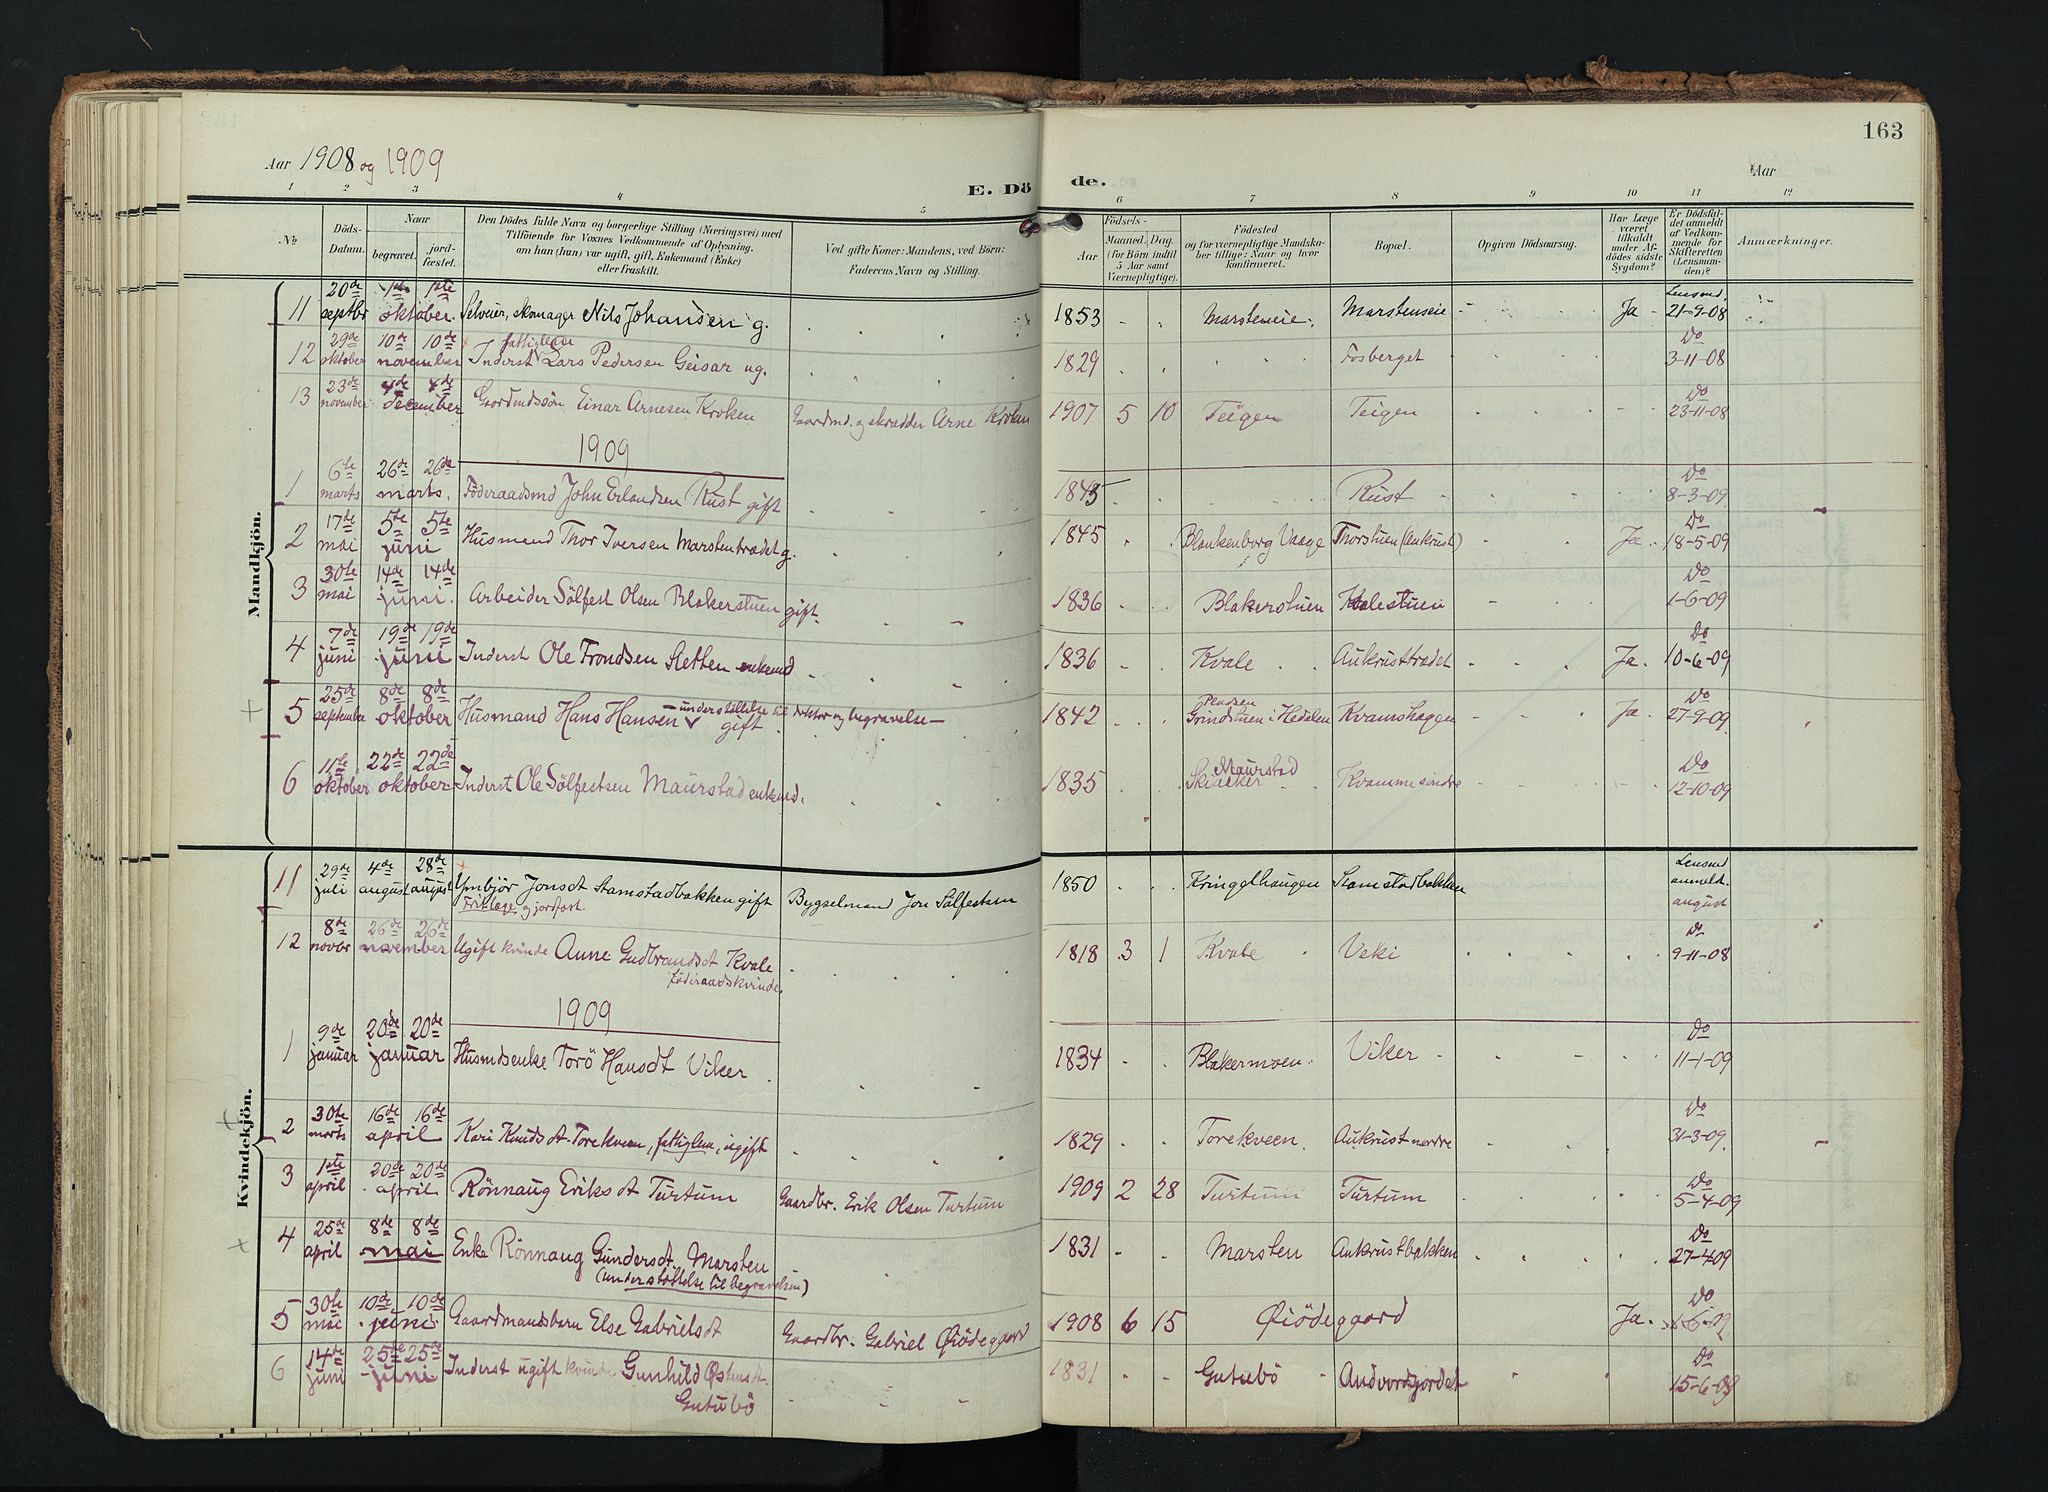 163
Aar 1908 og 1909
Aar
E. Döde.
1 2 3 4 5 6 7 8 9 10 11 12
No.
Döds-Datum.
Naar
begravet.
jord-fæstet.
Den Dödes fulde Navn og borgerlige Stilling (Næringsvei) med
Tilföiende for Voxnes Vedkommende af Oplysning,
om han (hun) var ugift, gift, Enkemand (Enke)
eller fraskilt.
Ved gifte Koner: Mandens, ved Börn:
Faderens Navn og Stilling.
Födsels-
Aar
Maaned. Dag.
(for Börn indtil
5 Aar samt
Værnepligtige).
Födested
og for værnepligtige Mandska-
ber tillige: Naar og hvor
konfirmeret.
Bopæl.
Opgiven Dödsaarsag.
Har Læge
været
tilkaldt
under Af-
dödes sidste
Sygdom?
Er Dödsfal-
det anmeldt
af Vedkom-
mende for
Skifteretten
(Lensman-
den)?
Anmærkninger.
Mandkjön.
11 20de septbr 1ste 1ste oktober. Selveier, skomager Nils Johansen g. 1853 Marsteneie. Marsteneie Ja Lensmd. 21-9-08
12 29de oktober 10de 10de november Inderst fattiglem Lars Pedersen Geisar ug. 1829 Fosberget Do 3-11-08
13 23de november 4de 4de december Gaardmdssön Einar Arnesen Kroken Gaardmd. og skrædder Arne Kroken 1907 5 10 Teigen Teigen Do 23-11-08
1909
1 6te marts 26de 26de marts. Föderaadsmd John Erlandsen Rust gift 1845 Rust Do 8-3-09
2 17de mai 5te 5te juni Husmand Thor Iversen Marstentrædet g. 1845 Blankenborg Vaage Thorstuen (Aukrust) Ja Do 18-5-09
3 30te mai 14de 14de juni. Arbeider Sölfest Olsen Blakerstuen gift 1836 Blakerstuen Kvalestuen Do 1-6-09
4 7de juni 19de 19de juni Inderst Ole Trondsen Sletten enkemd 1836 Kvale Aukrusttrædet Ja Do 10-6-09
5 25de september 8de 8de oktober Husmand Hans Hansen gift - understöttelse til doktor og begravelse - 1842 Grindstuen i Hedalen Kvamshagen Ja Do 27-9-09
6 11te oktober 22de 22de oktober Inderst Ole Sölfestsen Maurstad enkemd. 1835 Maurstad Skiaaker Kvamme sindre Do 12-10-09
Kvindekjön.
11 29de juli 4de august 28de august Ymbjör Jonsdt Stamstadbakken gift Bygselmand Jon Sölfestsen 1850 Kringelhaugen Stamstadbakken Lensmd anmeldt. august
og jordfæst.
12 8de novbr 26de 26de november Ugift kvinde Anne Gudbrandsdt Kvale föderaadskvinde. 1818 3 1 Kvale Veki Do 9-11-08
1909
1 9de januar 20de 20de januar Husmdsenke Torö Hansdt Viker 1834 Blakermoen Viker Do 11-1-09
2 30te marts 16de 16de april Kari Knudsdt Torekveen, fattiglem, ugift 1829 Torekveen. Aukrust nordre Do 31-3-09.
3 1ste april 20de 20de april Rönnaug Eriksdt Turtum Gaardbr. Erik Olsen Turtum 1909 2 28 Turtum Turtum Do 5-4-09
4 25de april 8de 8de mai Enke Rönnaug Gundersdt. Marsten (understöttelse til begravelsen) 1831 Marsten Aukrustbakken Do 27-4-09
5 30te mai 10de 10de juni Gaardmandsbarn Else Gabrielsdt Gaardbr. Gabriel Øiödegaard 1908 6 15 Øiödegaard Ja. Do 1-6-09
6 14de juni 25de 25de juni Inderst ugift kvinde Gunhild Østensdt. Gutubö 1831 Gutubö Andvordsjordet Do 15-6-09